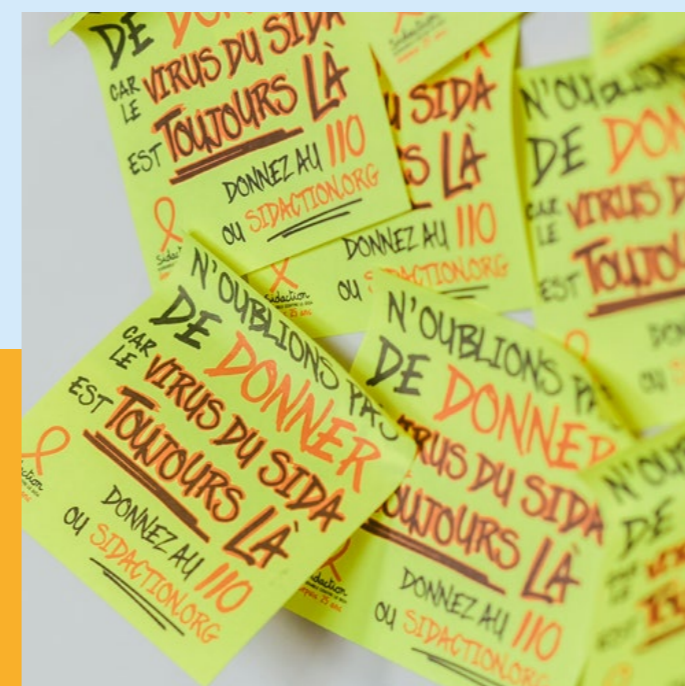 DE DONNER
CAR LE VIRUS DU SIDA
EST TOUJOURS LÀ
DONNEZ AU 110
OU SIDACTION.ORG
Sidaction
U SIDA
S LÀ
DONNEZ AU 110
OU SIDACTION.ORG
N'OUBLIONS
DE DON
CAR LE VIRUS D
EST TOUJOU
DON
OU
N'OUBLIONS PAS
DE DONNER
CAR LE VIRUS DU SIDA
EST TOUJOURS LÀ
DONNEZ AU 110
OU SIDACTION.ORG
Sidaction
N'OUBLIONS PA
DE DONNER
RUS DU SIDA
OUJOURS LÀ
DONNEZ AU 110
OU SIDACTION.ORG
Sidaction
depuis 25 ans
N'OU
DE